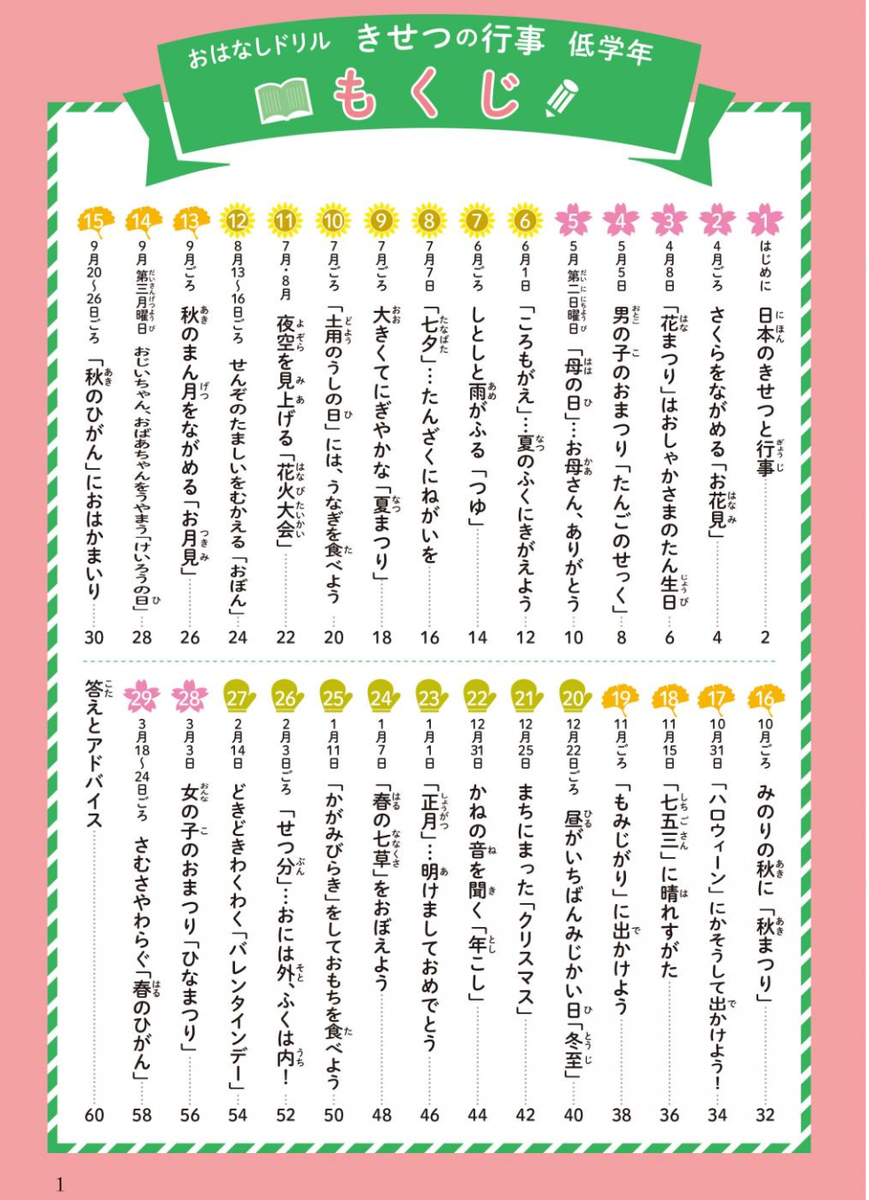 おはなしドリル きせつの行事 低学年
もくじ
1 はじめに 日本のきせつと行事 2
2 4月ごろ さくらをながめる「お花見」 4
3 4月8日 「花まつり」はおしゃかさまのたん生日 6
4 5月5日 男の子のおまつり「たんごのせっく」 8
5 5月 第二日曜日 「母の日」…お母さん、ありがとう 10
6 6月1日 「ころもがえ」…夏のふくにきがえよう 12
7 6月ごろ しとしと雨がふる「つゆ」 14
8 7月7日 「七夕」…たんざくにねがいを 16
9 7月ごろ 大きくてにぎやかな「夏まつり」 18
10 7月ごろ 「土用のうしの日」には、うなぎを食べよう 20
11 7月・8月 夜空を見上げる「花火大会」 22
12 8月13〜16日ごろ せんぞのたましいをむかえる「おぼん」 24
13 9月ごろ 秋のまん月をながめる「お月見」 26
14 9月 第三月曜日 おじいちゃん、おばあちゃんをうやまう「けいろうの日」 28
15 9月20〜26日ごろ 「秋のひがん」におはかまいり 30
16 10月ごろ みのりの秋に「秋まつり」 32
17 10月31日 「ハロウィーン」にかそうして出かけよう！ 34
18 11月15日 「七五三」に晴れすがた 36
19 11月ごろ 「もみじがり」に出かけよう 38
20 12月22日ごろ 昼がいちばんみじかい日「冬至」 40
21 12月25日 まちにまった「クリスマス」 42
22 12月31日 かねの音を聞く「年こし」 44
23 1月1日 「正月」…明けましておめでとう 46
24 1月7日 「春の七草」をおぼえよう 48
25 1月11日 「かがみびらき」をしておもちを食べよう 50
26 2月3日ごろ 「せつ分」…おには外、ふくは内！ 52
27 2月14日 どきどきわくわく「バレンタインデー」 54
28 3月3日 女の子のおまつり「ひなまつり」 56
29 3月18〜24日ごろ さむさやわらぐ「春のひがん」 58
答えとアドバイス 60
1